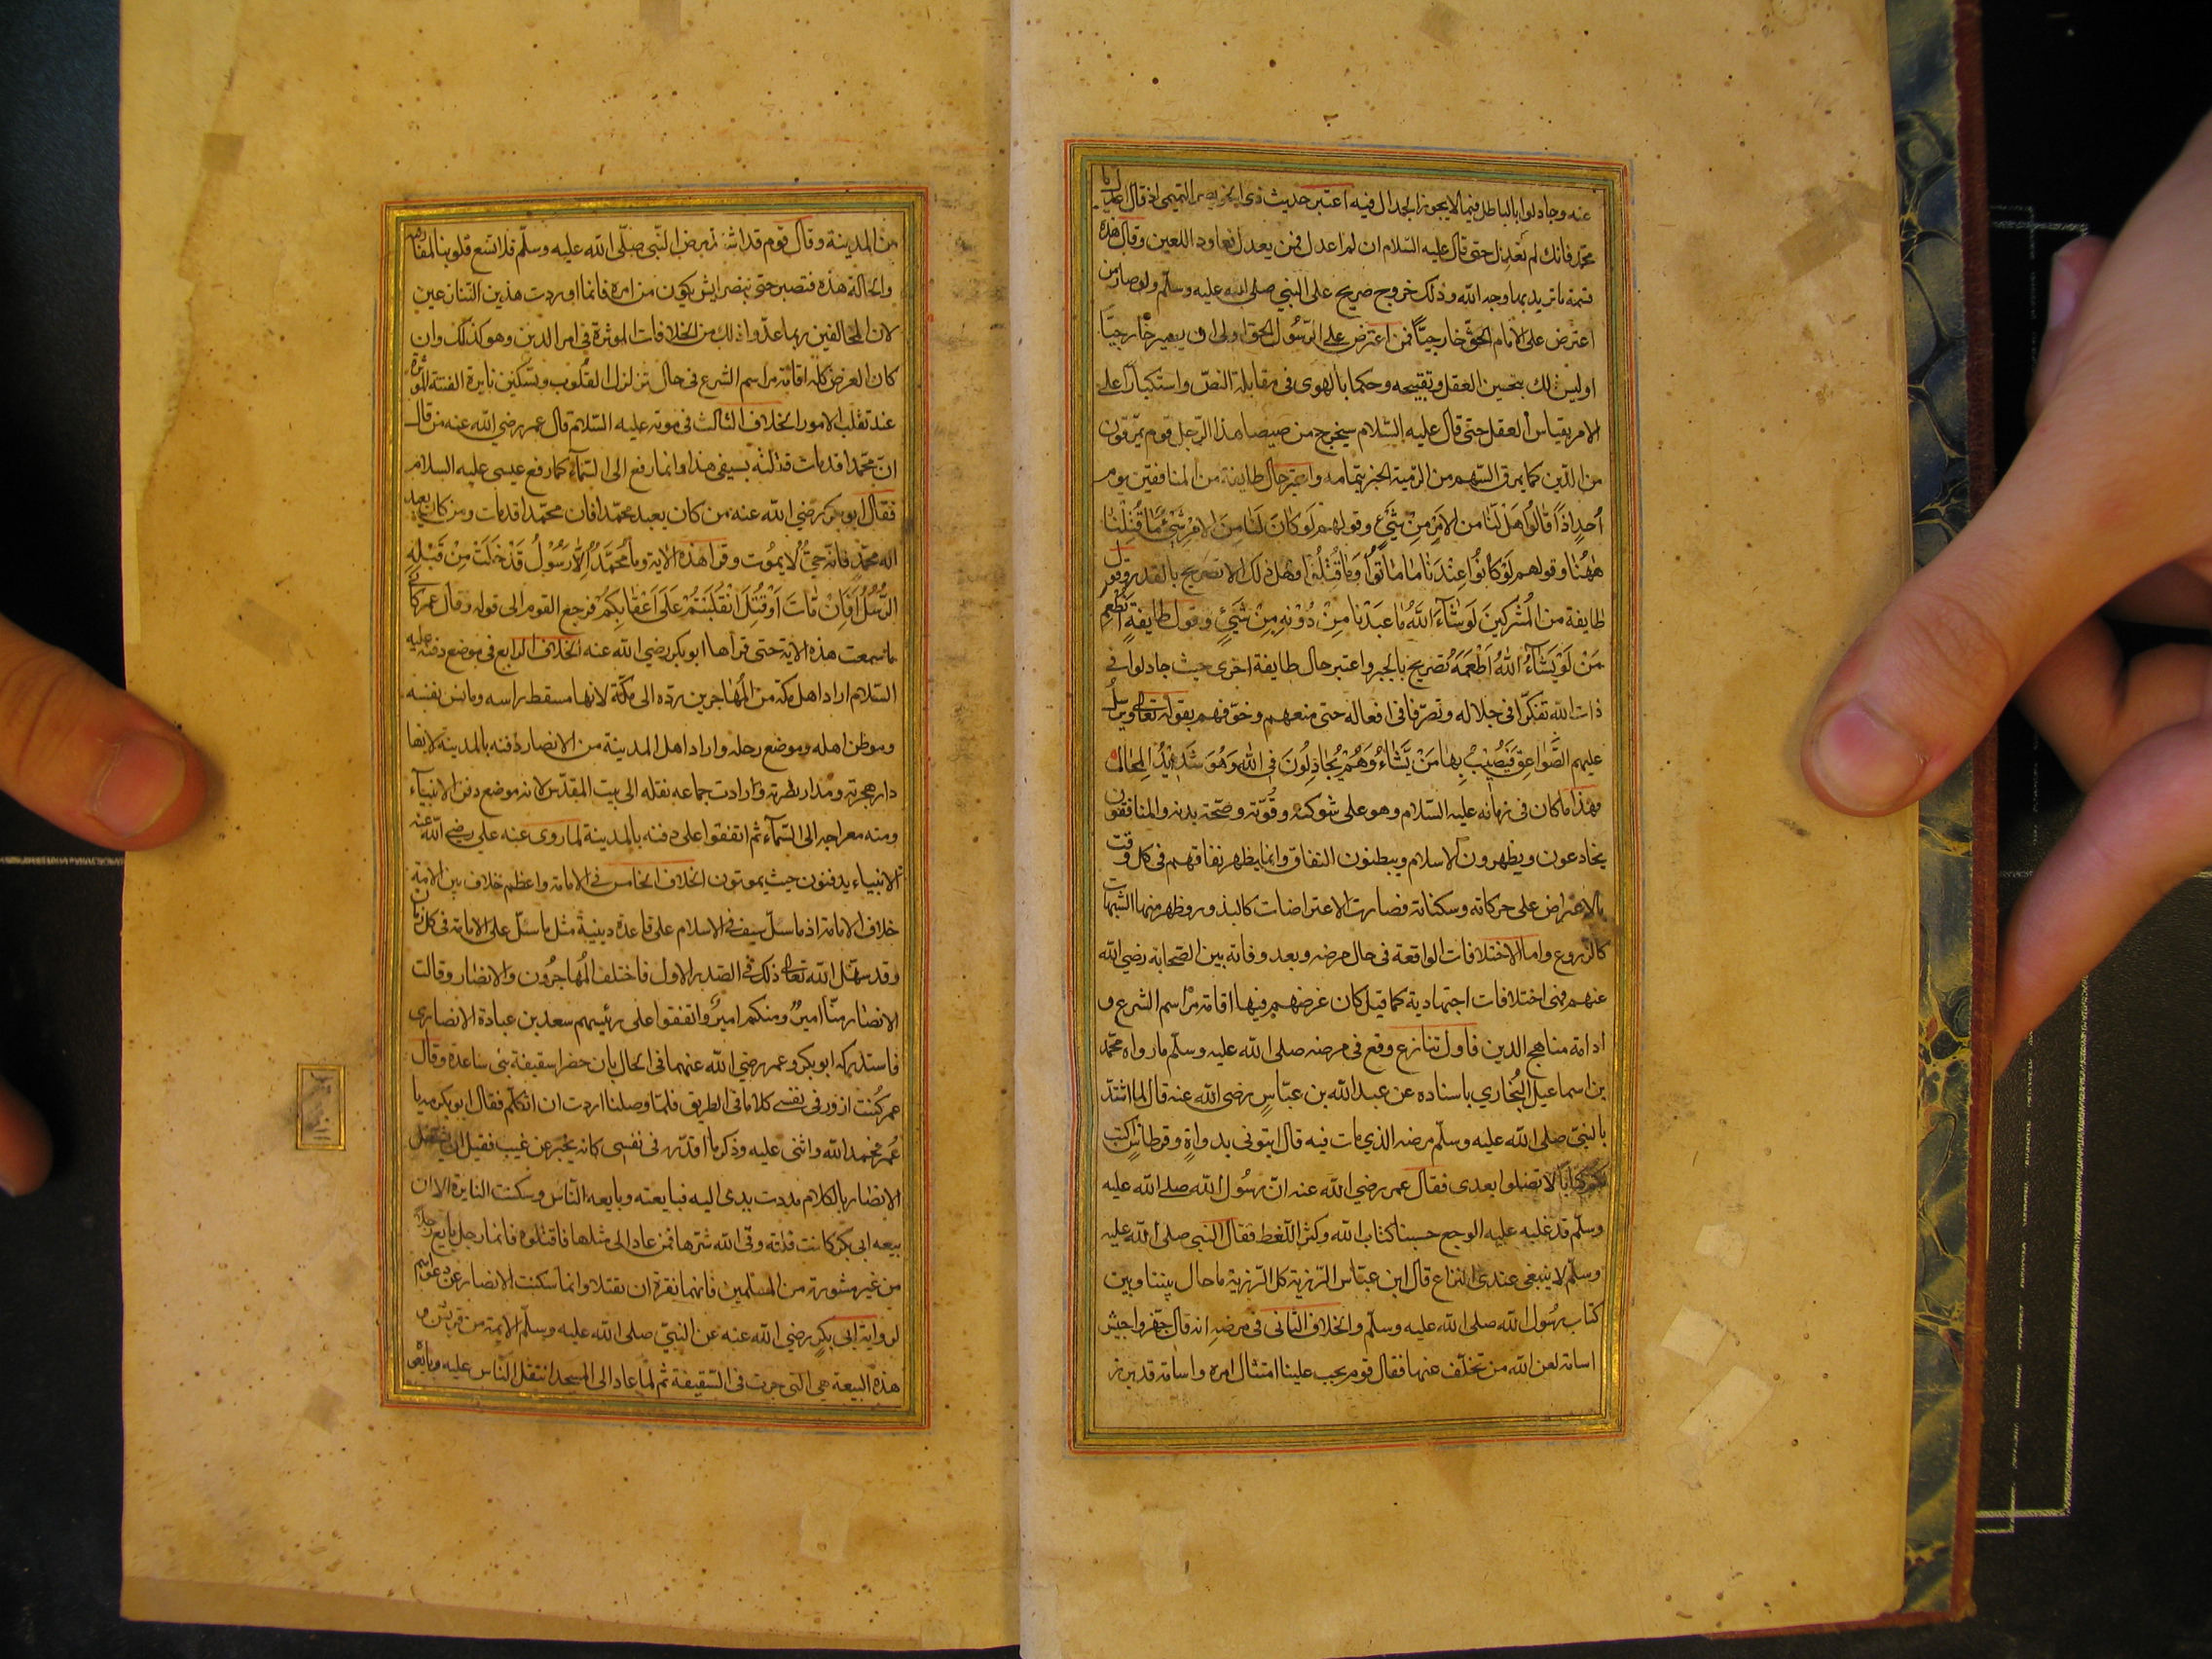 عنه وجادلوا بالباطل فيما لا يجوز الجدال فيه اعتبر حديث ذى الخويصرة التميمى اذ قال اعدل يا
محمد فانك لم تعدل حتى قال عليه السلام ان لم اعدل فمن يعدل فعاود اللعين وقال هذه
قسمة ما تريد بها وجه الله وذلك خروج صريح على النبي صلى الله عليه وسلم ولو صار من
اعترض على الامام الحق خارجيّا فمن اعترض على الرّسُول الحق اولى ان يصير خارجيّا
اوليس ذلك بتحسين العقل وتقبيحه وحكما بالهوى فى مقابلة النصّ واستكبارا على
الامر بقياس العقل حتى قال عليه السّلام سيخرج من ضيضا هذا الرّجل قوم يمرقون
من الدّين كما يمرق السّهم من الرّمية الخبر بتمامه واعتبر حال طايفة من المنافقين يوم
اُحدٍ اذ قالُوا هَلْ لَنا من الاَمرِ مِنْ شَيْءٍ وقولهم لَو كانَ لَنا مِنَ الامْرِ شَيْءٌ مَا قُتِلْنا
هٰهُنا وقولهم لَوْ كانُوا عِنْدَنا ما ماتُوا وَما قُتِلُوا فهل ذلك الا تصريح بالقدر وقول
طايفة من المُشركينَ لَو شاءَ اللهُ ما عبَدْنا مِنْ دُوْنِهِ مِنْ شَيْءٍ وقول طايفةٍ اَنُطْعِمُ
مَنْ لَوْ يَشاءُ اللهُ اَطْعَمَهُ تصريح بالجبر واعتبر حال طايفة اخرى حيث جادلوا فى
ذات الله تفكرا فى جلاله وتصرّفا فى افعاله حتى منعهم وخوّفهم بقوله تعالى ويرسل
عليهم الصَّواعِق فَيُصِيْبُ بِها مَنْ يَّشاءُ وَهُمْ يُجادِلُونَ فِى اللهِ وَهُوَ شَدِيْدُ المِحَالِ
فهذا ما كان فى زمانه عليه السّلام وهو على شوكته وقُوّته وصحّة بدنه والمنافقون
يخادعون ويظهرون الاسلام ويبطنون النفاق وانما يظهر نفاقهم فى كل وقت
بالاعتراض على حركاته وسكناته فصارت الاعتراضات كالبذور وظهر منها الشبهات
كالزروع واما الاختلافات الواقعة فى حال مرضه وبعد وفاته بين الصّحابة رضى الله
عنهم فهى اختلافات اجتهادية كما قيل كان غرضهم فيها اقامة مراسم الشرع و
ادامة مناهج الدين فاول تنازع وقع فى مرضه صلى الله عليه وسلّم ما رواه محمّد
بن اسماعيل البُخاري باسناده عن عبد الله بن عبّاسٍ رضى الله عنه قال لما اشتدّ
بالنبىّ صلى الله عليه وسلّم مرضه الذي مات فيه قال ايتونى بدواةٍ وقرطاسٍ اكتب
لكم كتابًا لا تضلوا بعدى فقال عمر رضي الله عنه انّ رسُول الله صلى الله عليه
وسلّم قد غلبه عليه الوجع حسبنا كتاب الله وكثر اللّغط فقال النبي صلى الله عليه
وسلّم لا ينبغى عندى التنازع قال ابن عبّاس الرّزية كل الرّزية ما حال بيننا وبين
كتاب رسُول الله صلى الله عليه وسلّم والخلاف الثانى فى مرضه انه قال جهّزوا جيش
اسامة لعن الله من تخلّف عنها فقال قوم يجب علينا امتثال امره واسامة قد برز
من المدينة وقال قوم قد اشتد مرض النّبى صلّى الله عليه وسلّم فلا تسع قلوبنا لمفارقته
والحالة هذه فنصبر حتى نبصر ايش يكون من امره فانما اوردت هذين التنازعين
لان المخالفين ربما عدّوا ذلك من الخلافات الموثرة فى امر الدين وهو كذلك وان
كان الغرض كله اقامة مراسم الشرع فى حال تزلزل القُلوب وتسكين نايرة الفتنة المؤثرة
عند تقلب الامور الخلاف الثالث فى موته عليه السّلام قال عمر رضي الله عنه من قال
انّ محمّدا قد مات قتلته بسيفى هذا وانما رفع الى السّماء كما رفع عيسى عليه السلام
فقال ابو بكر رضي الله عنه من كان يعبد محمّدا فان محمّدا قد مات ومن كان يعبد
اله محمّدٍ فانّه حيٌّ لا يموُت وقرا هذه الاية وما مُحمّدٌ اِلّا رَسُوْلٌ قَدْ خَلَتْ مِنْ قَبْلِهِ
الرُّسُلُ اَفَاِنْ مّاتَ اَوْ قُتِلَ انْقَلَبْتُمْ عَلَى اَعْقَابِكُمْ فرجع القوم الى قوله وقال عمر كانّى
ما سمعت هذه الاية حتى قراها ابو بكر رضي الله عنه الخلاف الرابع فى موضع دفنه عليه
السّلام اراد اهل مكّة من المُهاجرين ردّه الى مكّة لانها مسقط راسه ومانس نفسه
وموطن اهله وموضع رحله واراد اهل المدينة من الانصار دفنه بالمدينة لانها
دار هجرته ومدار نصرته وارادت جماعه نقله الى بيت المقدّس لانه موضع دفن الانبياء
ومنه معراجه الى السّماء ثم اتفقوا على دفنه بالمدينة لما روى عنه علي رضي الله عنه
الانبياء يدفنون حيث يموتون الخلاف الخامس فى الامامة واعظم خلاف بين الامة
خلاف الامامة اذ ما سلّ سيف فى الاسلام على قاعدة دينية مثل ما سلّ على الامامة فى كل زمان
وقد سهّل الله تعالى ذلك فى الصّدر الاول فاختلف المُهاجرُون والانصار وقالت
الانصار منّا اميرٌ ومنكم اميرٌ واتفقوا على رئيسهم سعد بن عبادة الانصارى
فاستدركه ابو بكر وعمر رضي الله عنهما فى الحال بان حضرا سقيفة بنى ساعدة وقال
عمر كُنت ازور فى نفسى كلاما فى الطريق فلمّا وصلنا اردت ان اتكلّم فقال ابو بكر مه يا
عُمر فحمد الله واثنى عليه وذكر ما اقدّره فى نفسى كانه يخبر عن غيب فقبل ان يشتغل
الانصار بالكلام مددت يدى اليه فبايعته وبايعه النّاس وسكنت النايرة الا ان
بيعه ابى بكر كانت فلتة وقى الله شرّها فمن عاد الى مثلها فاقتلوه فانما رجل بايع رجلا
من غير مشورة من المسلمين فانهما تغرة ان يقتلا وانما سكنت الانصار عن دعواهم
لرواية ابى بكرٍ رضي الله عنه عن النبىّ صلى الله عليه وسلّم الايمة من قريش و
هذه البيعة هى التى جرت فى السّقيفة ثم لما عاد الى المسجد انتقل الناس عليه وبايعوه